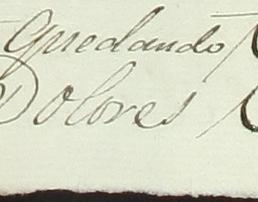 quedando
Dolores